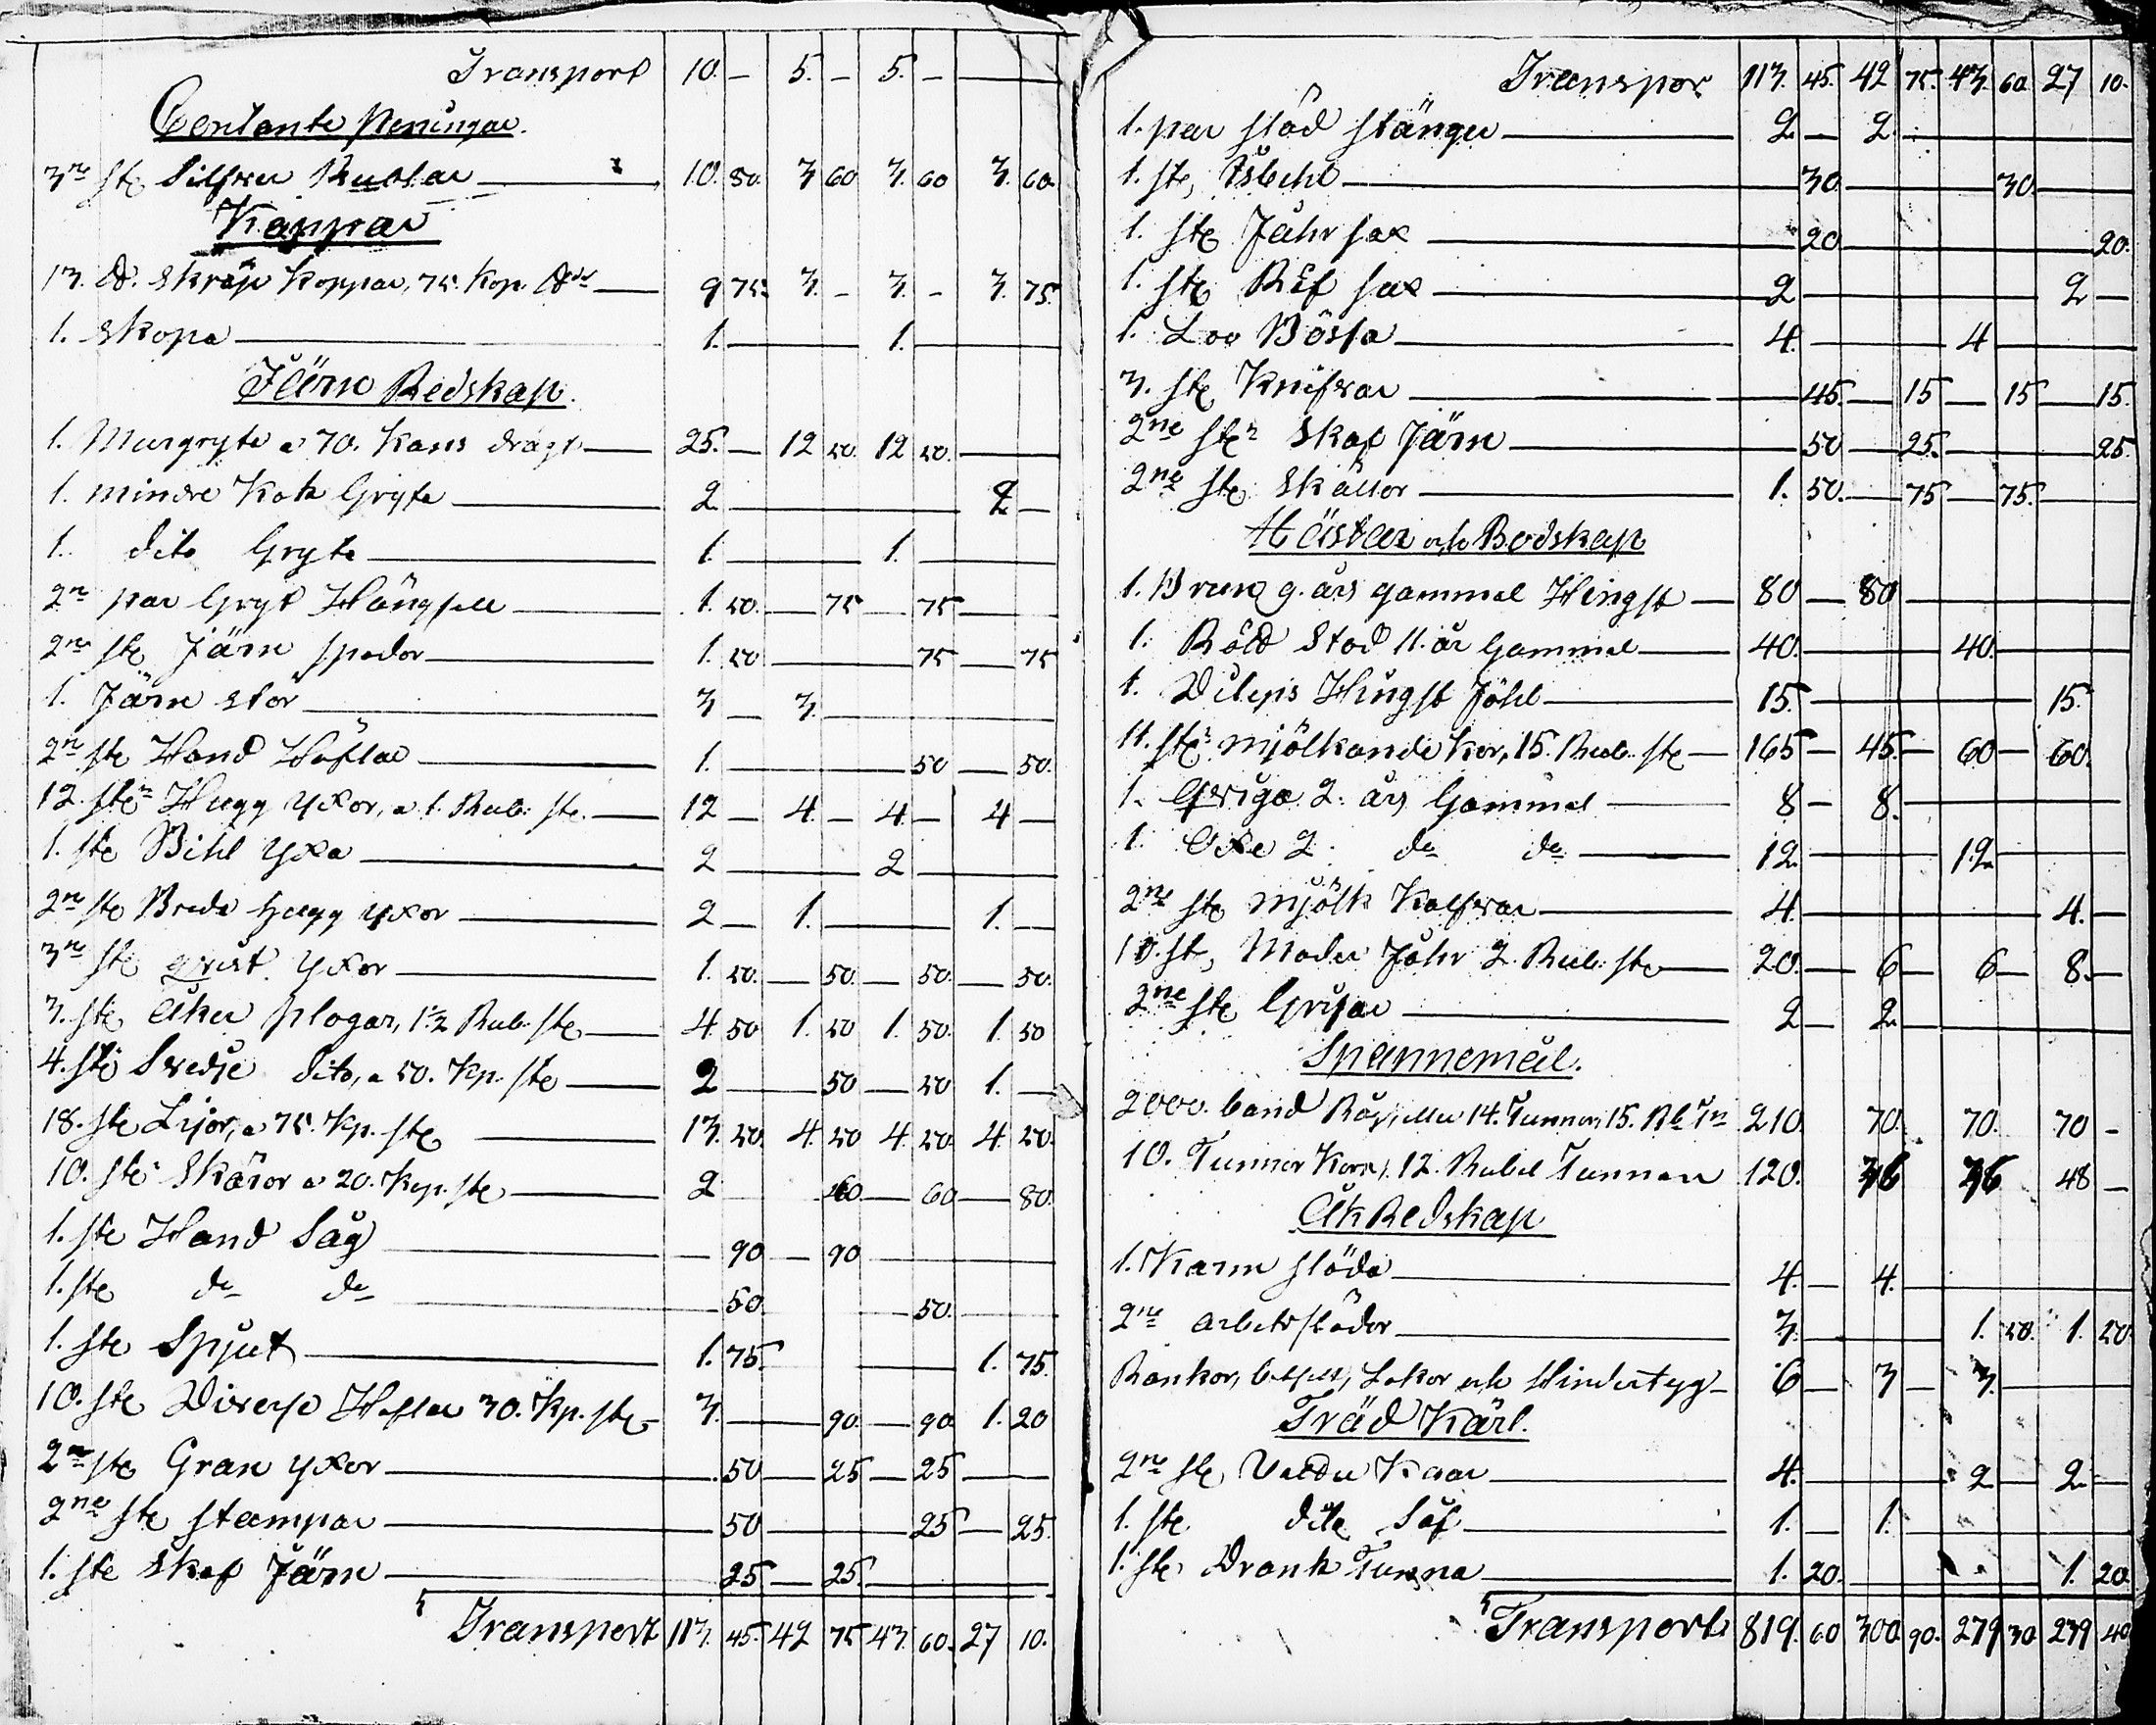 Transport 10. — 5. — 5. —
Contante Penningar.
3ne ste Silfver Rublar 10. 80. 3 60 3. 60 3. 60.
Koppar
13. ℔. Skräp Koppar, 75. Kop. ℔det 9 75. 3. — 3. — 3. 75.
1. Skopa 1. 1.
Järn Redskap.
1. Murgryta a 70. Kans dragt 25. — 12 50. 12 50.
1. mindre Kok Gryta 2 2 —
1. dito Gryta 1. 1.
2ne par Gryt Hängsell 1. 50. 75 75
2ne ste Järn spador 1. 50 75 75
1. Järn stör 3 — 3.
2ne ste Hand Häflar 1. 50 50.
12. ste Hugg Yxor, a 1. Rub. ste. 12 — 4. — 4. — 4 —
1. ste Bihl Yxa 2 2
2ne ste Breda hugg yxor 2 — 1. 1. —
3ne ste qvist Yxor 1. 50. 50. 50. 50.
3. ste Åker Plogar, 1 1/2 Rub. ste 4 50 1. 50 1. 50. 1. 50
4. ste Svedje dito, a 50. Kp. ste 2 50 50 1. —
18. ste Lijor, a 75. Kp. ste 13. 50. 4. 50 4. 50. 4 50.
10. ste Skäror a 20. Kop. ste 2 60 60 80.
1. ste Hand Såg 90 90
1. ste do do 50. 50.
1. ste Spjut 1. 75. 1. 75.
10. ste Diverse Haflar 30. Kp. ste 3. 90. 90 1. 20
2ne ste Gran yxor 50 25 25
2ne ste stampar 50 25 25.
1. ste Skaf Järn 25. 25.
Transport 113. 45. 42 75 43. 60. 27 10.
Transpor 113. 45. 42 75. 43. 60. 27 10.
1. par slöd stänger 2 — 2.
1. ste, Isbihl 30. 30.
1. ste Fåhr sax 20 20.
1. ste Räf sax 2 2 —
1. Loo Bössa 4. 4
3. ste Knifvar 45. 15 15 15.
2ne ste Skaf Järn 50 25. 25.
2ne ste Skällor 1. 50. 75 75.
Hästar och Bodskap
1. Brun 9. års gammal Hingst 80 — 80
1. Röd Stod 11. år Gammal 40. 40.
1. Hingst Föhl 15. 15.
11. ste mjölkande Kor, 15. Rub. ste 165 — 45. — 60 — 60.
1. Qviga 2. års Gammal 8 — 8.
1. Oxe 2. do do 12. 12
2ne ste mjölk Kalfvar 4. 4. —
10. ste, Moder Fåhr 2. Rub. ste 20. — 6 — 6 — 8. —
2ne ste Grisar 2 — 2.
Spannemål.
2000. band Råg, eller 14. Tunnor, 15. Rb Tn 210. 70. 70. 70 —
10. Tunnor Korn, 12. Rubel Tunnan 120. 36 36 48 —
Åk Redskap
1. Karm släda 4. — 4.
2ne arbets slädor 3. 1. 50. 1. 50
Rankor, Lokor och Hindertyg 6 — 3 — 3.
Träd Kärl.
2ne ste, Kaar 4. 2 — 2. —
1. ste dito Så 1. — 1.
1. ste Drank Tunna 1. 20. 1. 20.
Transport 819. 60 300. 90. 279 30 239 40